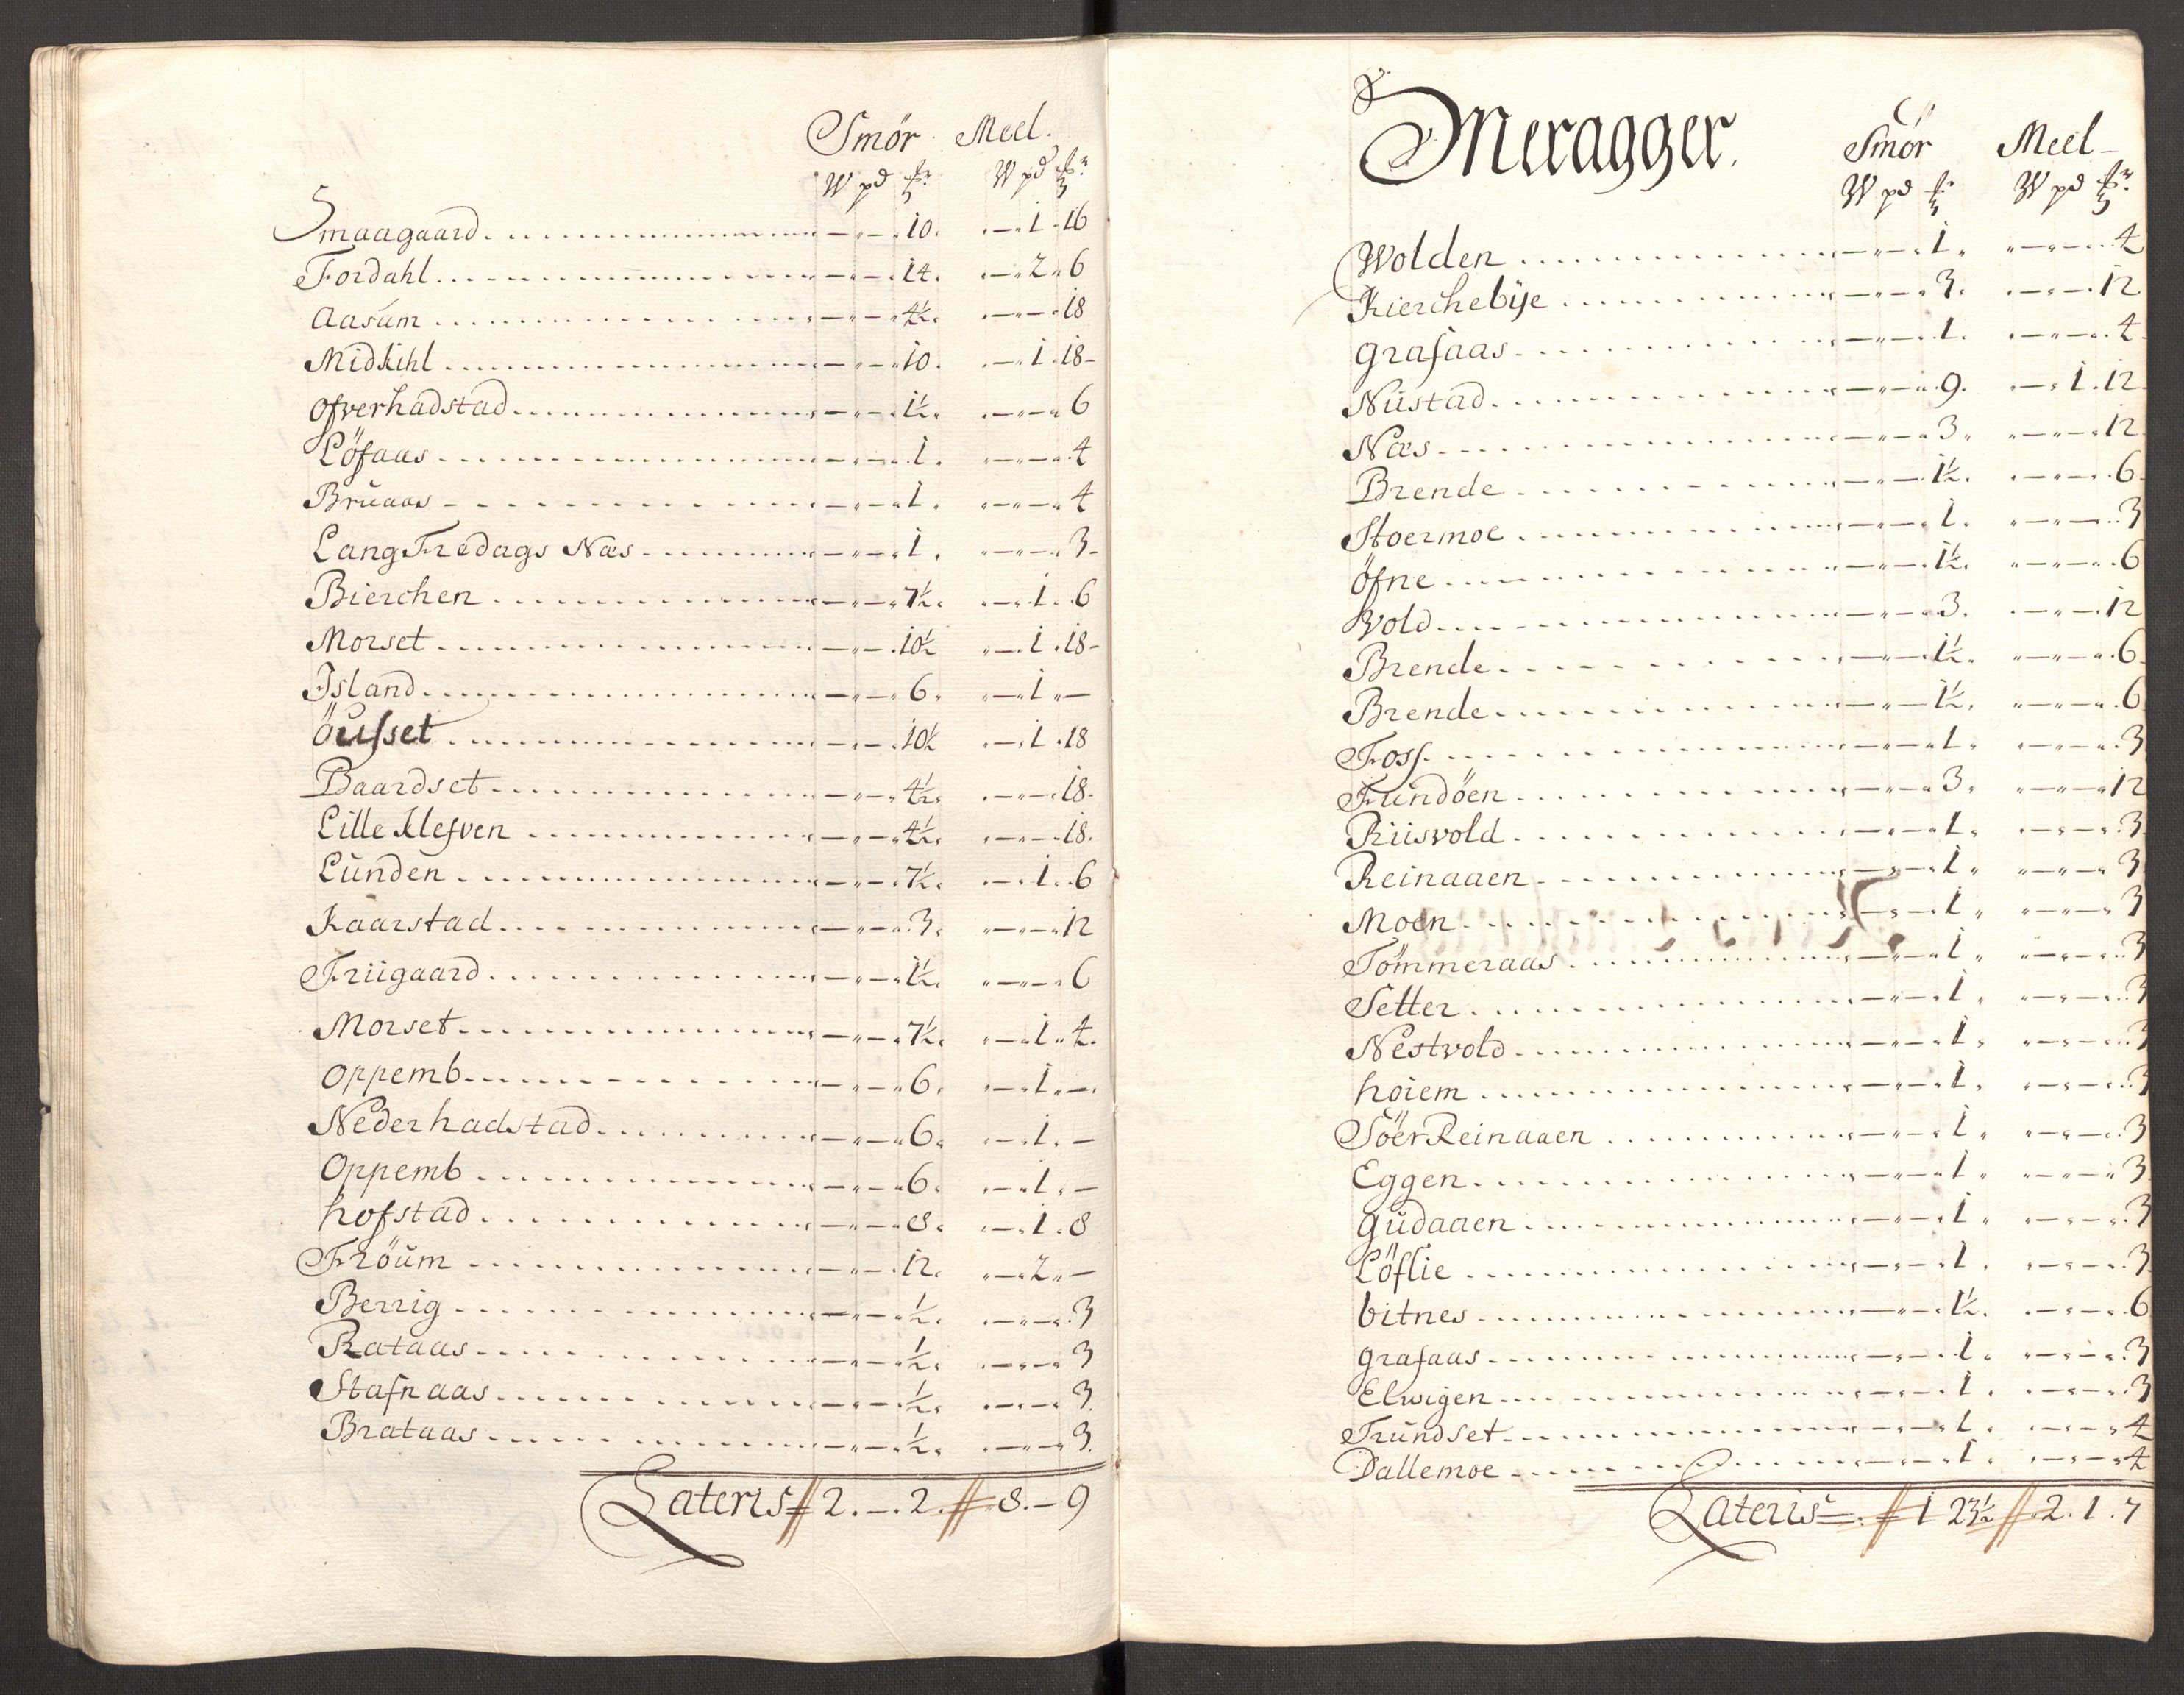 Smör Meel.
W pd W pd
Smaagaard 10. 1 16
Fordahl 14. 2 6
Aasum 4½ 18
Midkihl 10. 1 18
Ofverhadstad 1½ 6
Löfaas 1. 4
Bruaas 1. 4
Lang Fredags Næs 1. 3
Bierchen 7½ 1. 6
Morset 10½ 1. 18
Island 6. 1 —
öusset 10½ 1. 18
Baardset 4½ 18.
Lille Klefven 4½ 18.
Lunden 7½ 1. 6
Kaarstad 3. 12
Friigaard 1½ 6
Morset 7½ 1 4.
Oppemb 6. 1 —
Nederhadstad 6. 1. —
Oppemb 6. 1. —
hofstad 8. 1. 8
Fröum 12. 2 —
Berrig ½ 3
Rataas ½ 3
Stafnaas ½ 3
Brataas ½ 3.
Lateris 2. — 2. 8. — 9
Meragger.
Smör Meel
W pd W pd
Wolden 1. 4
Kierchebÿe 3. 12
Grafaas 1. 4
Nustad 9. 1. 12
Næs 3. 12
Brende 1½. 6
Stoermoe 1. 3
Öfne 1½. 6
Vold 3. 12
Brende 1½. 6
Brende 1½. 6
Foss 1. 3
Fundöen 3. 12
Riisvold 1. 3
Reinaaen 1. 3
Moen 1. 3
Tömmeraas 1. 3
Setter 1. 3
Nestvold 1. 3
hoiem 1. 3
Söer Reinaaen 1. 3
Eggen 1. 3
Gudaaen 1. 3
Löflie 1. 3
Vitnes 1½. 6
Grafaas 1. 3
Elwigen 1. 3
Trundset 1. 4
Dallemoe 1. 4
Lateris 1 23½ 2. 1. 7